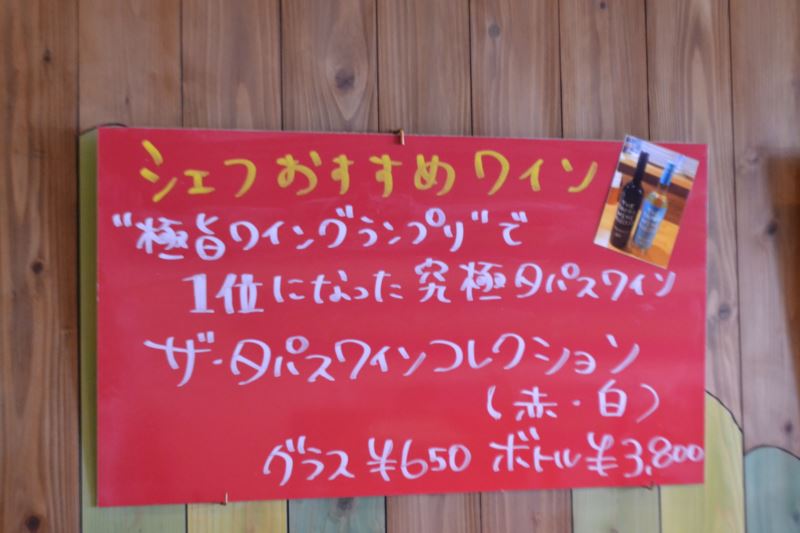 シェフおすすめワイン
"極旨ワイングランプリ"で
1位になった究極タパスワイン
ザ・タパスワインコレクション
(赤・白)
グラス ¥650 ボトル ¥3,800